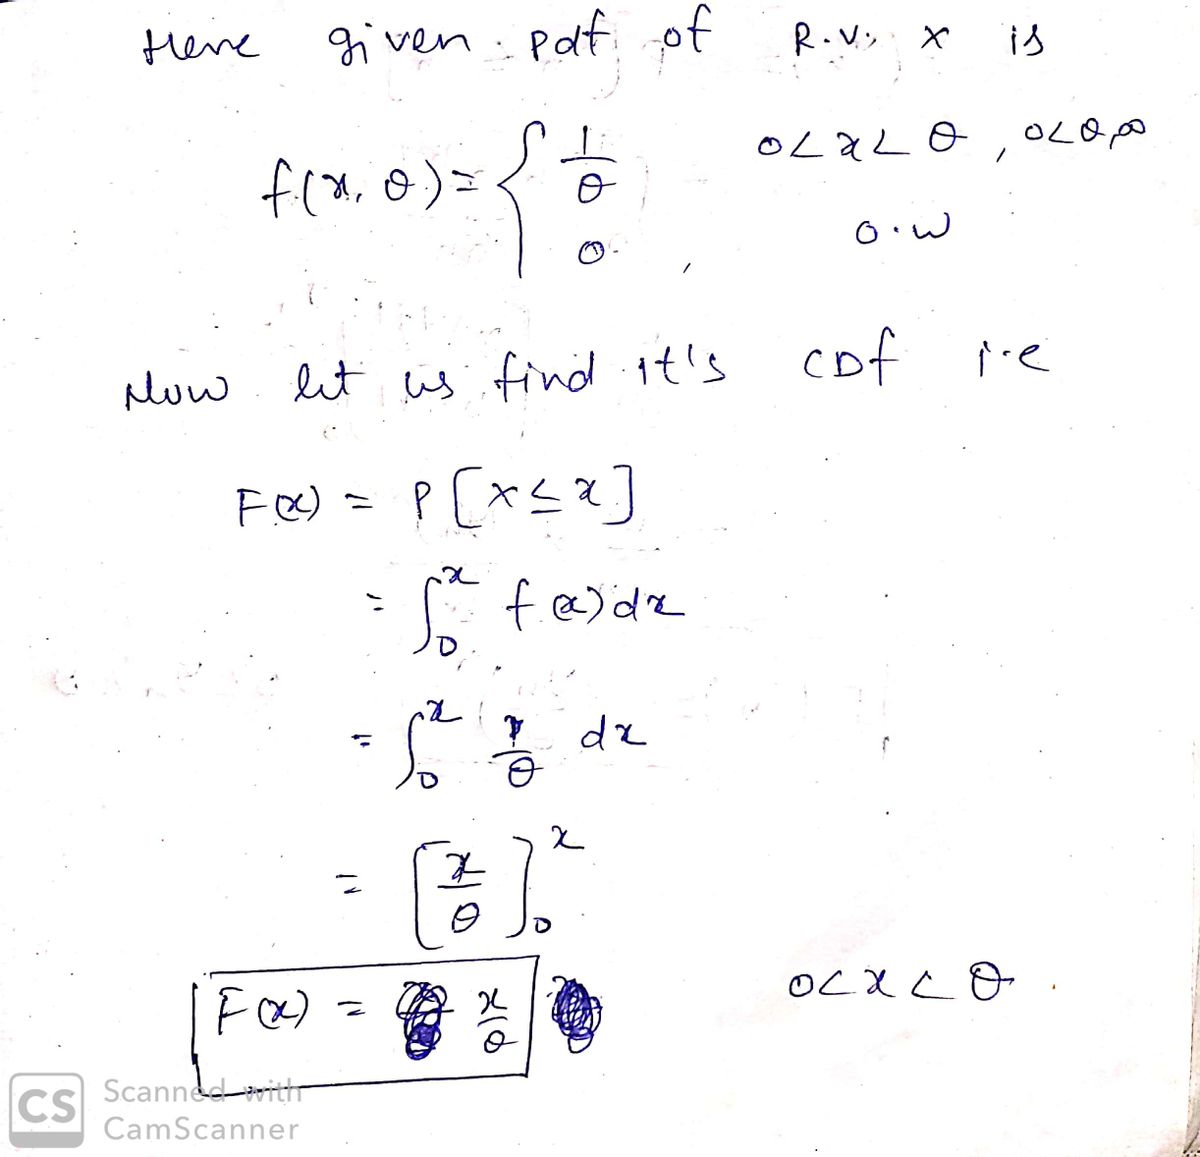 Here given pdf of R.V. X is
f(x, θ) = { 1/θ 0<x<θ, 0<θ<∞
0 o.w
Now let us find it's CDF i.e
F(x) = P[X≤x]
= ∫₀ˣ f(x)dx
= ∫₀ˣ 1/θ dx
= [x/θ]₀ˣ
F(x) = x/θ 0<x<θ.
CS Scanned with
CamScanner